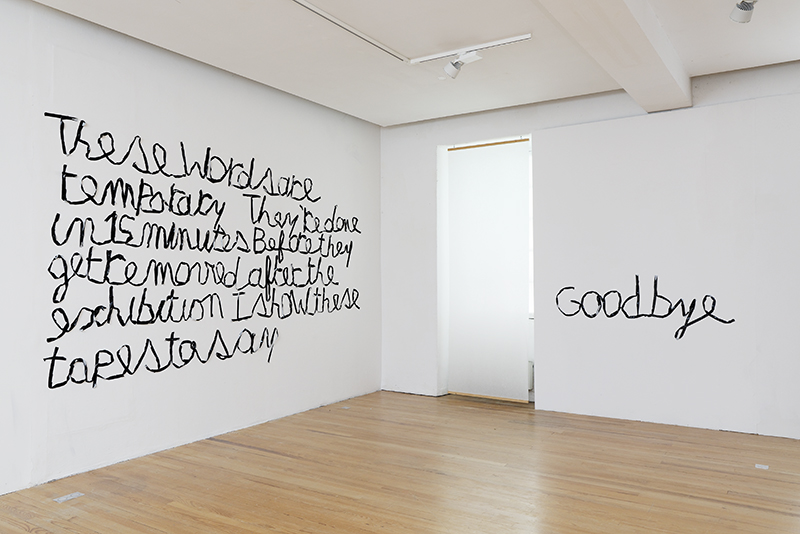 These words are
temporary They're done
in 15 minutes Before they
get removed after the
exhibition I show these
tapes to say
Goodbye